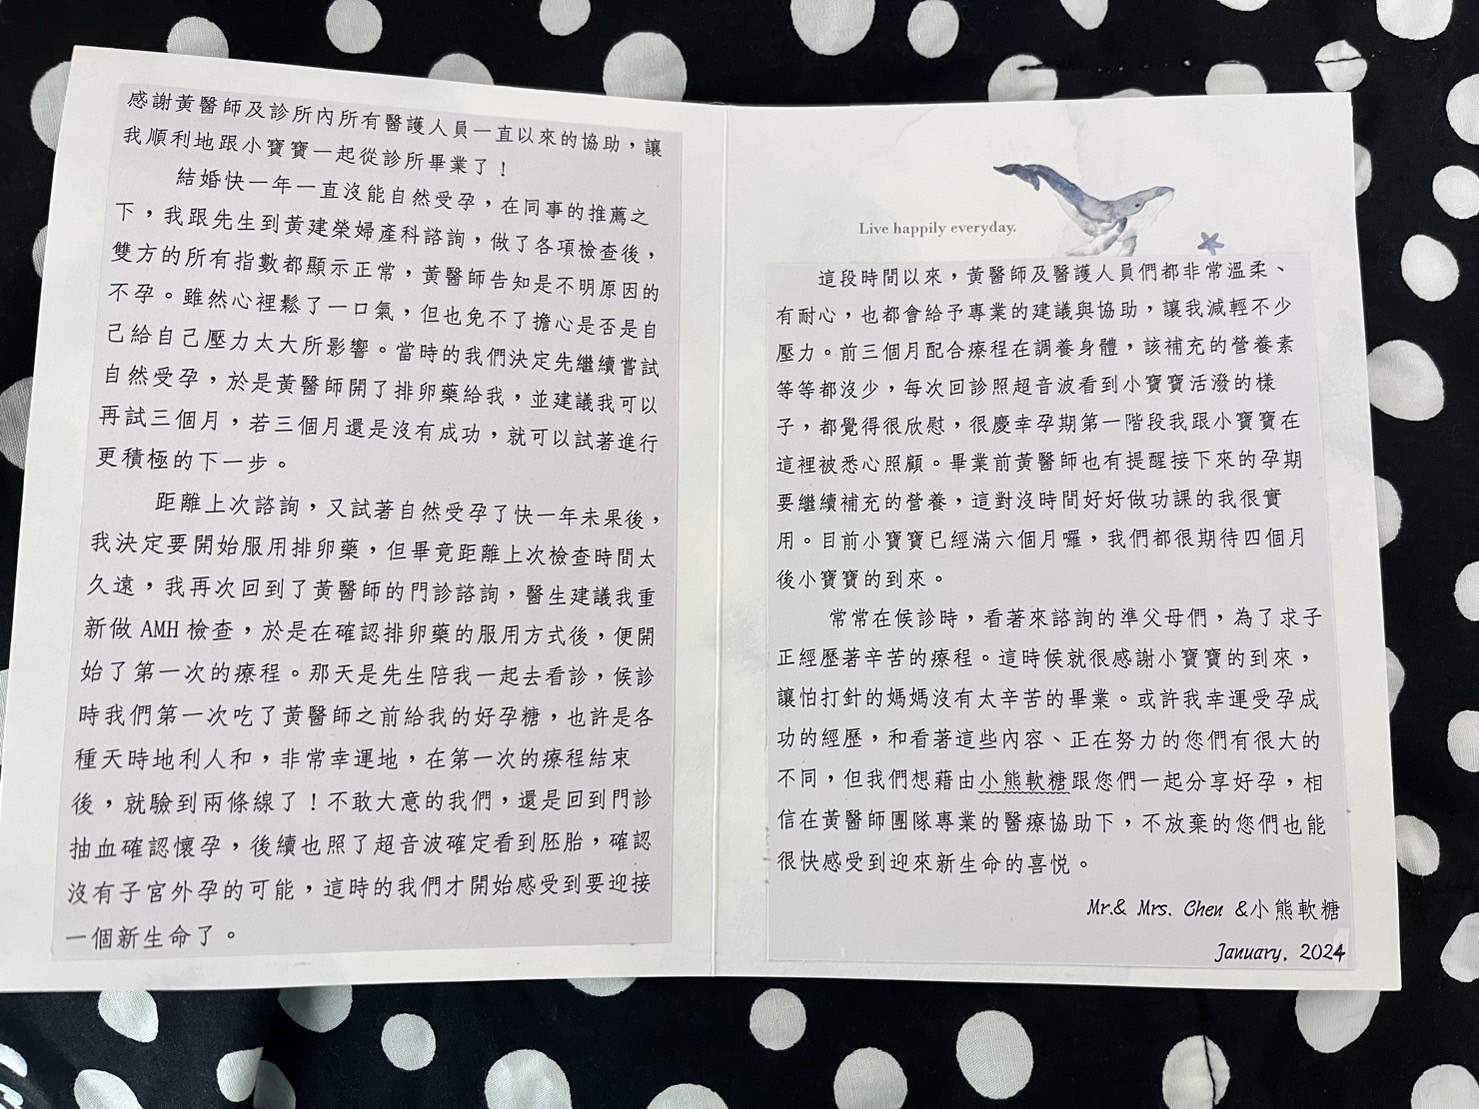 感謝黃醫師及診所內所有醫護人員一直以來的協助，讓
我順利地跟小寶寶一起從診所畢業了！
結婚快一年一直沒能自然受孕，在同事的推薦之
下，我跟先生到黃建榮婦產科諮詢，做了各項檢查後，
雙方的所有指數都顯示正常，黃醫師告知是不明原因的
不孕。雖然心裡鬆了一口氣，但也免不了擔心是否是自
己給自己壓力太大所影響。當時的我們決定先繼續嘗試
自然受孕，於是黃醫師開了排卵藥給我，並建議我可以
再試三個月，若三個月還是沒有成功，就可以試著進行
更積極的下一步。
距離上次諮詢，又試著自然受孕了快一年未果後，
我決定要開始服用排卵藥，但畢竟距離上次檢查時間太
久遠，我再次回到了黃醫師的門診諮詢，醫生建議我重
新做 AMH 檢查，於是在確認排卵藥的服用方式後，便開
始了第一次的療程。那天是先生陪我一起去看診，候診
時我們第一次吃了黃醫師之前給我的好孕糖，也許是各
種天時地利人和，非常幸運地，在第一次的療程結束
後，就驗到兩條線了！不敢大意的我們，還是回到門診
抽血確認懷孕，後續也照了超音波確定看到胚胎，確認
沒有子宮外孕的可能，這時的我們才開始感受到要迎接
一個新生命了。
Live happily everyday.
這段時間以來，黃醫師及醫護人員們都非常溫柔、
有耐心，也都會給予專業的建議與協助，讓我減輕不少
壓力。前三個月配合療程在調養身體，該補充的營養素
等等都沒少，每次回診照超音波看到小寶寶活潑的樣
子，都覺得很欣慰，很慶幸孕期第一階段我跟小寶寶在
這裡被悉心照顧。畢業前黃醫師也有提醒接下來的孕期
要繼續補充的營養，這對沒時間好好做功課的我很實
用。目前小寶寶已經滿六個月囉，我們都很期待四個月
後小寶寶的到來。
常常在候診時，看著來諮詢的準父母們，為了求子
正經歷著辛苦的療程。這時候就很感謝小寶寶的到來，
讓怕打針的媽媽沒有太辛苦的畢業。或許我幸運受孕成
功的經歷，和看著這些內容、正在努力的您們有很大的
不同，但我們想藉由小熊軟糖跟您們一起分享好孕，相
信在黃醫師團隊專業的醫療協助下，不放棄的您們也能
很快感受到迎來新生命的喜悅。
Mr.& Mrs. Chen &小熊軟糖
January, 2024